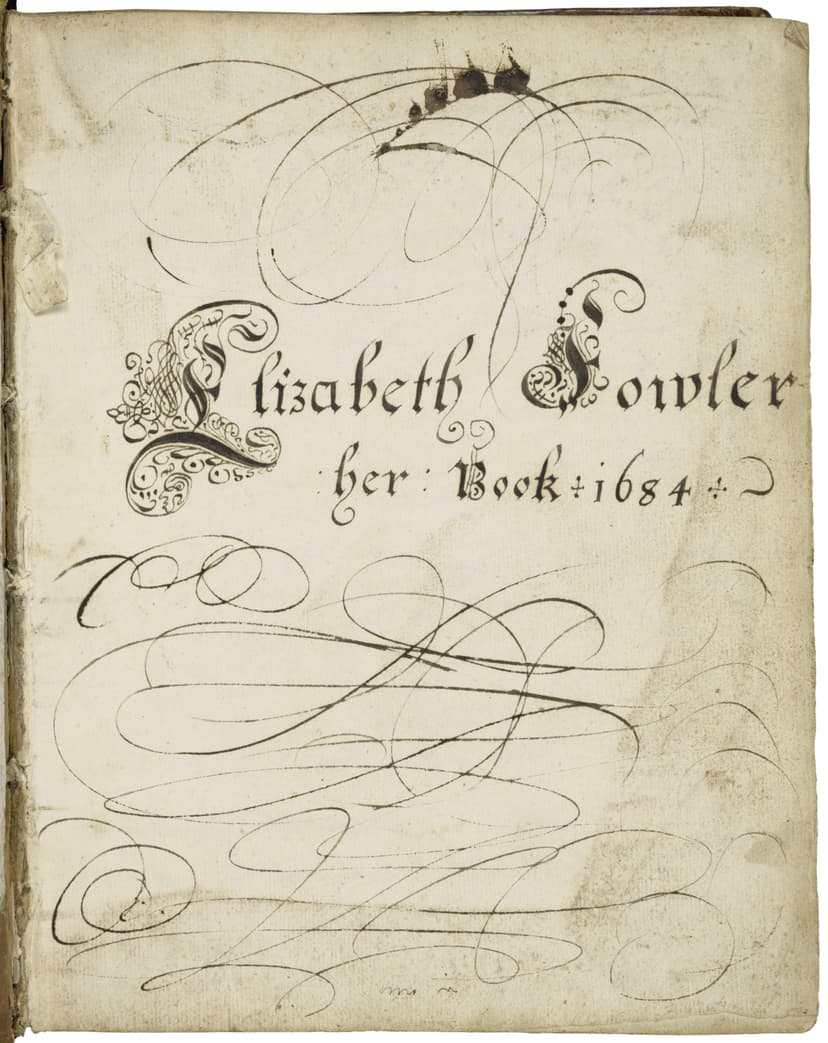 Elizabeth Fowler
: her : Book ÷ 1684 ÷